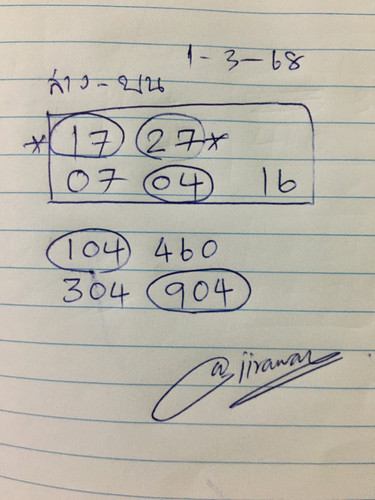 1-3-68
ล่าง-บน
*17 27*
07 04 16
104 460
304 904
@jirawat